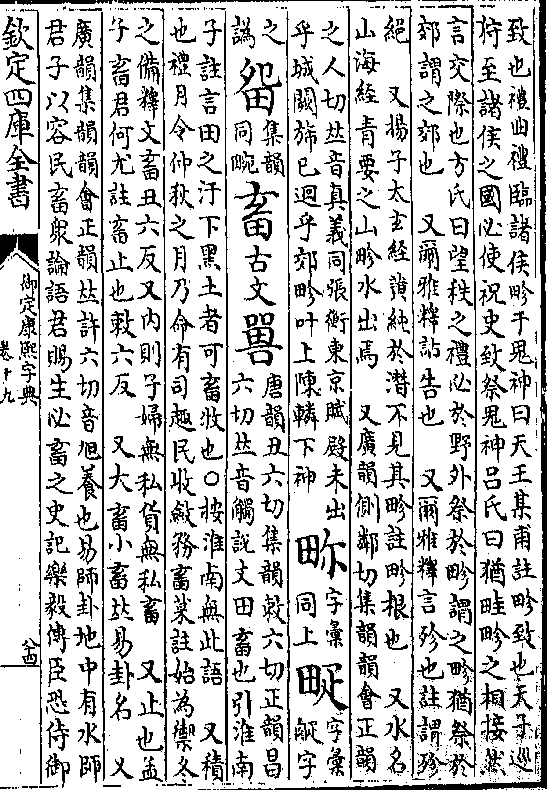 致也禮曲禮臨諸侯畛于鬼神曰天王某甫註畛致也天子巡
狩至諸侯之國必使祝史致祭鬼神呂氏曰猶畦畛之相接然
言交際也方氏曰望秩之禮必於野外祭於畛謂之畛猶祭於
郊謂之郊也 又爾雅釋詁告也 又爾雅釋言殄也註謂殄
絕 又揚子太玄經黃純於潛不見其畛註畛根也 又水名
山海經青要之山畛水出焉 又廣韻側鄰切集韻韻會正韻
之人切𠀤音真義同張衡東京賦殿未出
乎城闕旆已迴乎郊畛叶上陳轔下神
畛 字彙
同上
𤱶 字彙
𤱶字
之
譌
𤱍 集韻
同畹
畜 古文
𤲸
唐韻丑六切集韻敕六切正韻昌
六切𠀤音觸說文田畜也引淮南
子註言田之汙下黑土者可畜牧也○按淮南無此語 又積
也禮月令仲秋之月乃命有司趣民收斂務畜菜註始為禦冬
之備釋文畜丑六反又內則子婦無私貨無私畜 又止也孟
子畜君何尤註畜止也敕六反 又大畜小畜𠀤易卦名 又
廣韻集韻韻會正韻𠀤許六切音旭養也易師卦地中有水師
君子以容民畜衆論語君賜生必畜之史記樂毅傳臣恐侍御
欽定四庫全書
御定康熙字典
卷十九